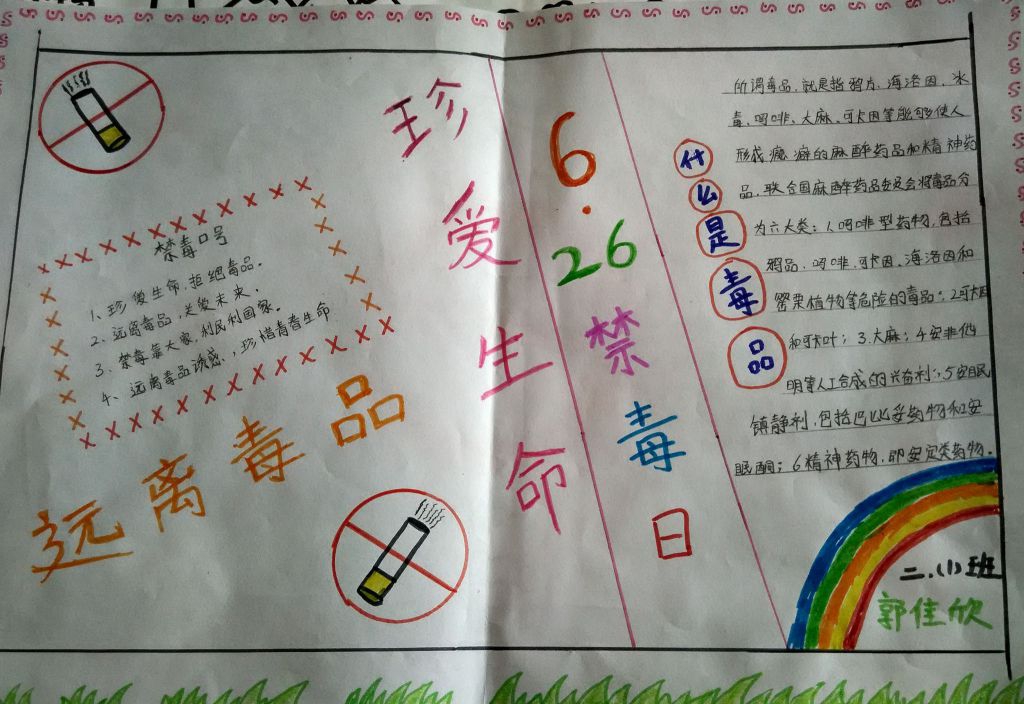 禁毒口号
1、珍爱生命,拒绝毒品。
2、远离毒品,关爱未来。
3、禁毒靠大家,利民利国家。
4、远离毒品诱惑,珍惜青春生命
远离毒品
珍爱生命
6.26禁毒日
什么是毒品
所谓毒品,就是指鸦片、海洛因、冰
毒、吗啡、大麻、可卡因等能够使人
形成瘾癖的麻醉药品和精神药
品,联合国麻醉药品委员会将毒品分
为六大类:1.吗啡型药物,包括
鸦品、吗啡、可卡因、海洛因和
罂粟植物等危险的毒品;2可卡因
和可卡叶;3.大麻;4安非他
明等人工合成的兴奋利;5安眠
镇静利,包括巴比妥药物和安
眠酮;6精神药物,即安定类药物.
二、(1)班
郭佳欣